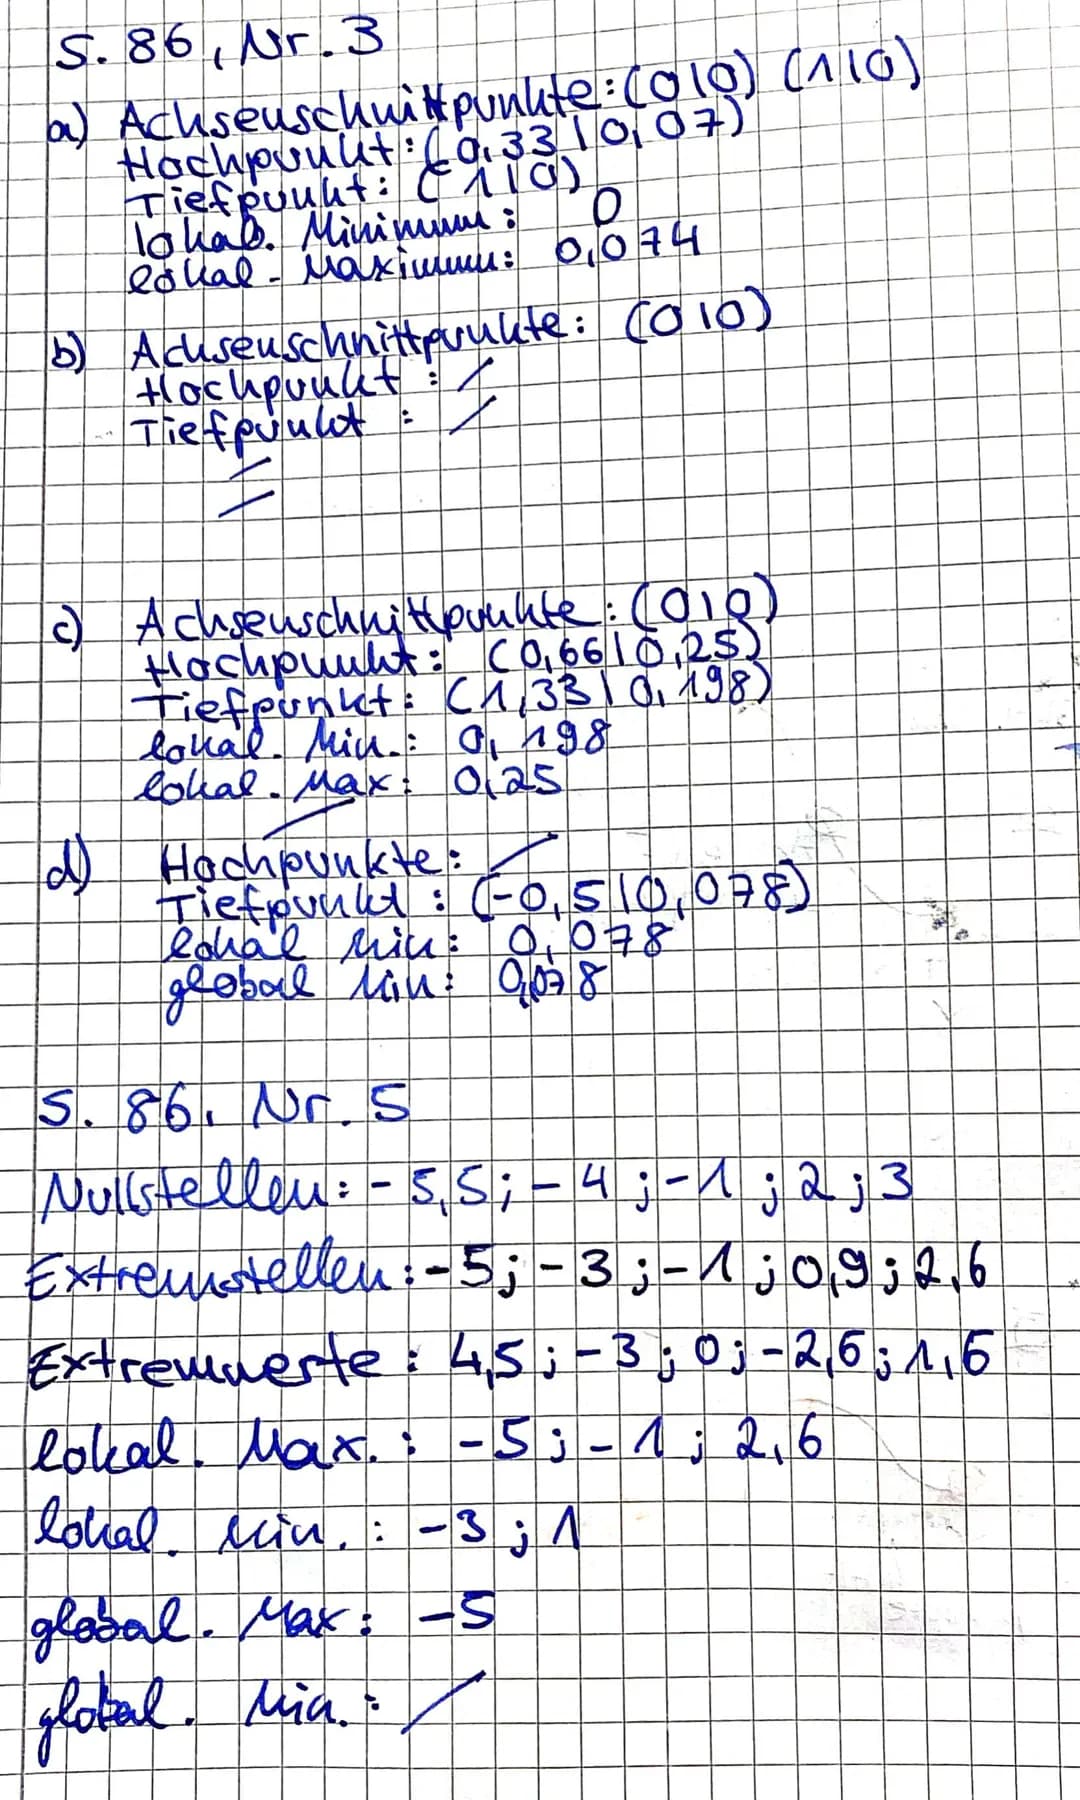 S. 86, Nr. 3
a) Achsenschnittpunkte: (0|0) (1|0)
Hochpunkt: (0,33|0,07)
Tiefpunkt: (1|0)
lokal. Minimum: 0
lokal. Maximum: 0,074
b) Achsenschnittpunkte: (0|0)
Hochpunkt: /
Tiefpunkt: /
c) Achsenschnittpunkte: (0|0)
Hochpunkt: (0,66|0,25)
Tiefpunkt: (1,33|0,198)
lokal. Min.: 0,198
lokal. Max: 0,25
d) Hochpunkte: /
Tiefpunkt: (-0,5|0,078)
lokal Min: 0,078
global Min: 0,078
S. 86, Nr. 5
Nullstellen: -5,5; -4; -1; 2; 3
Extremstellen: -5; -3; -1; 0,9; 2,6
Extremwerte: 4,5; -3; 0; -2,6; 1,6
lokal. Max.: -5; -1; 2,6
lokal. Min.: -3; 1
global. Max: -5
global. Min.: /